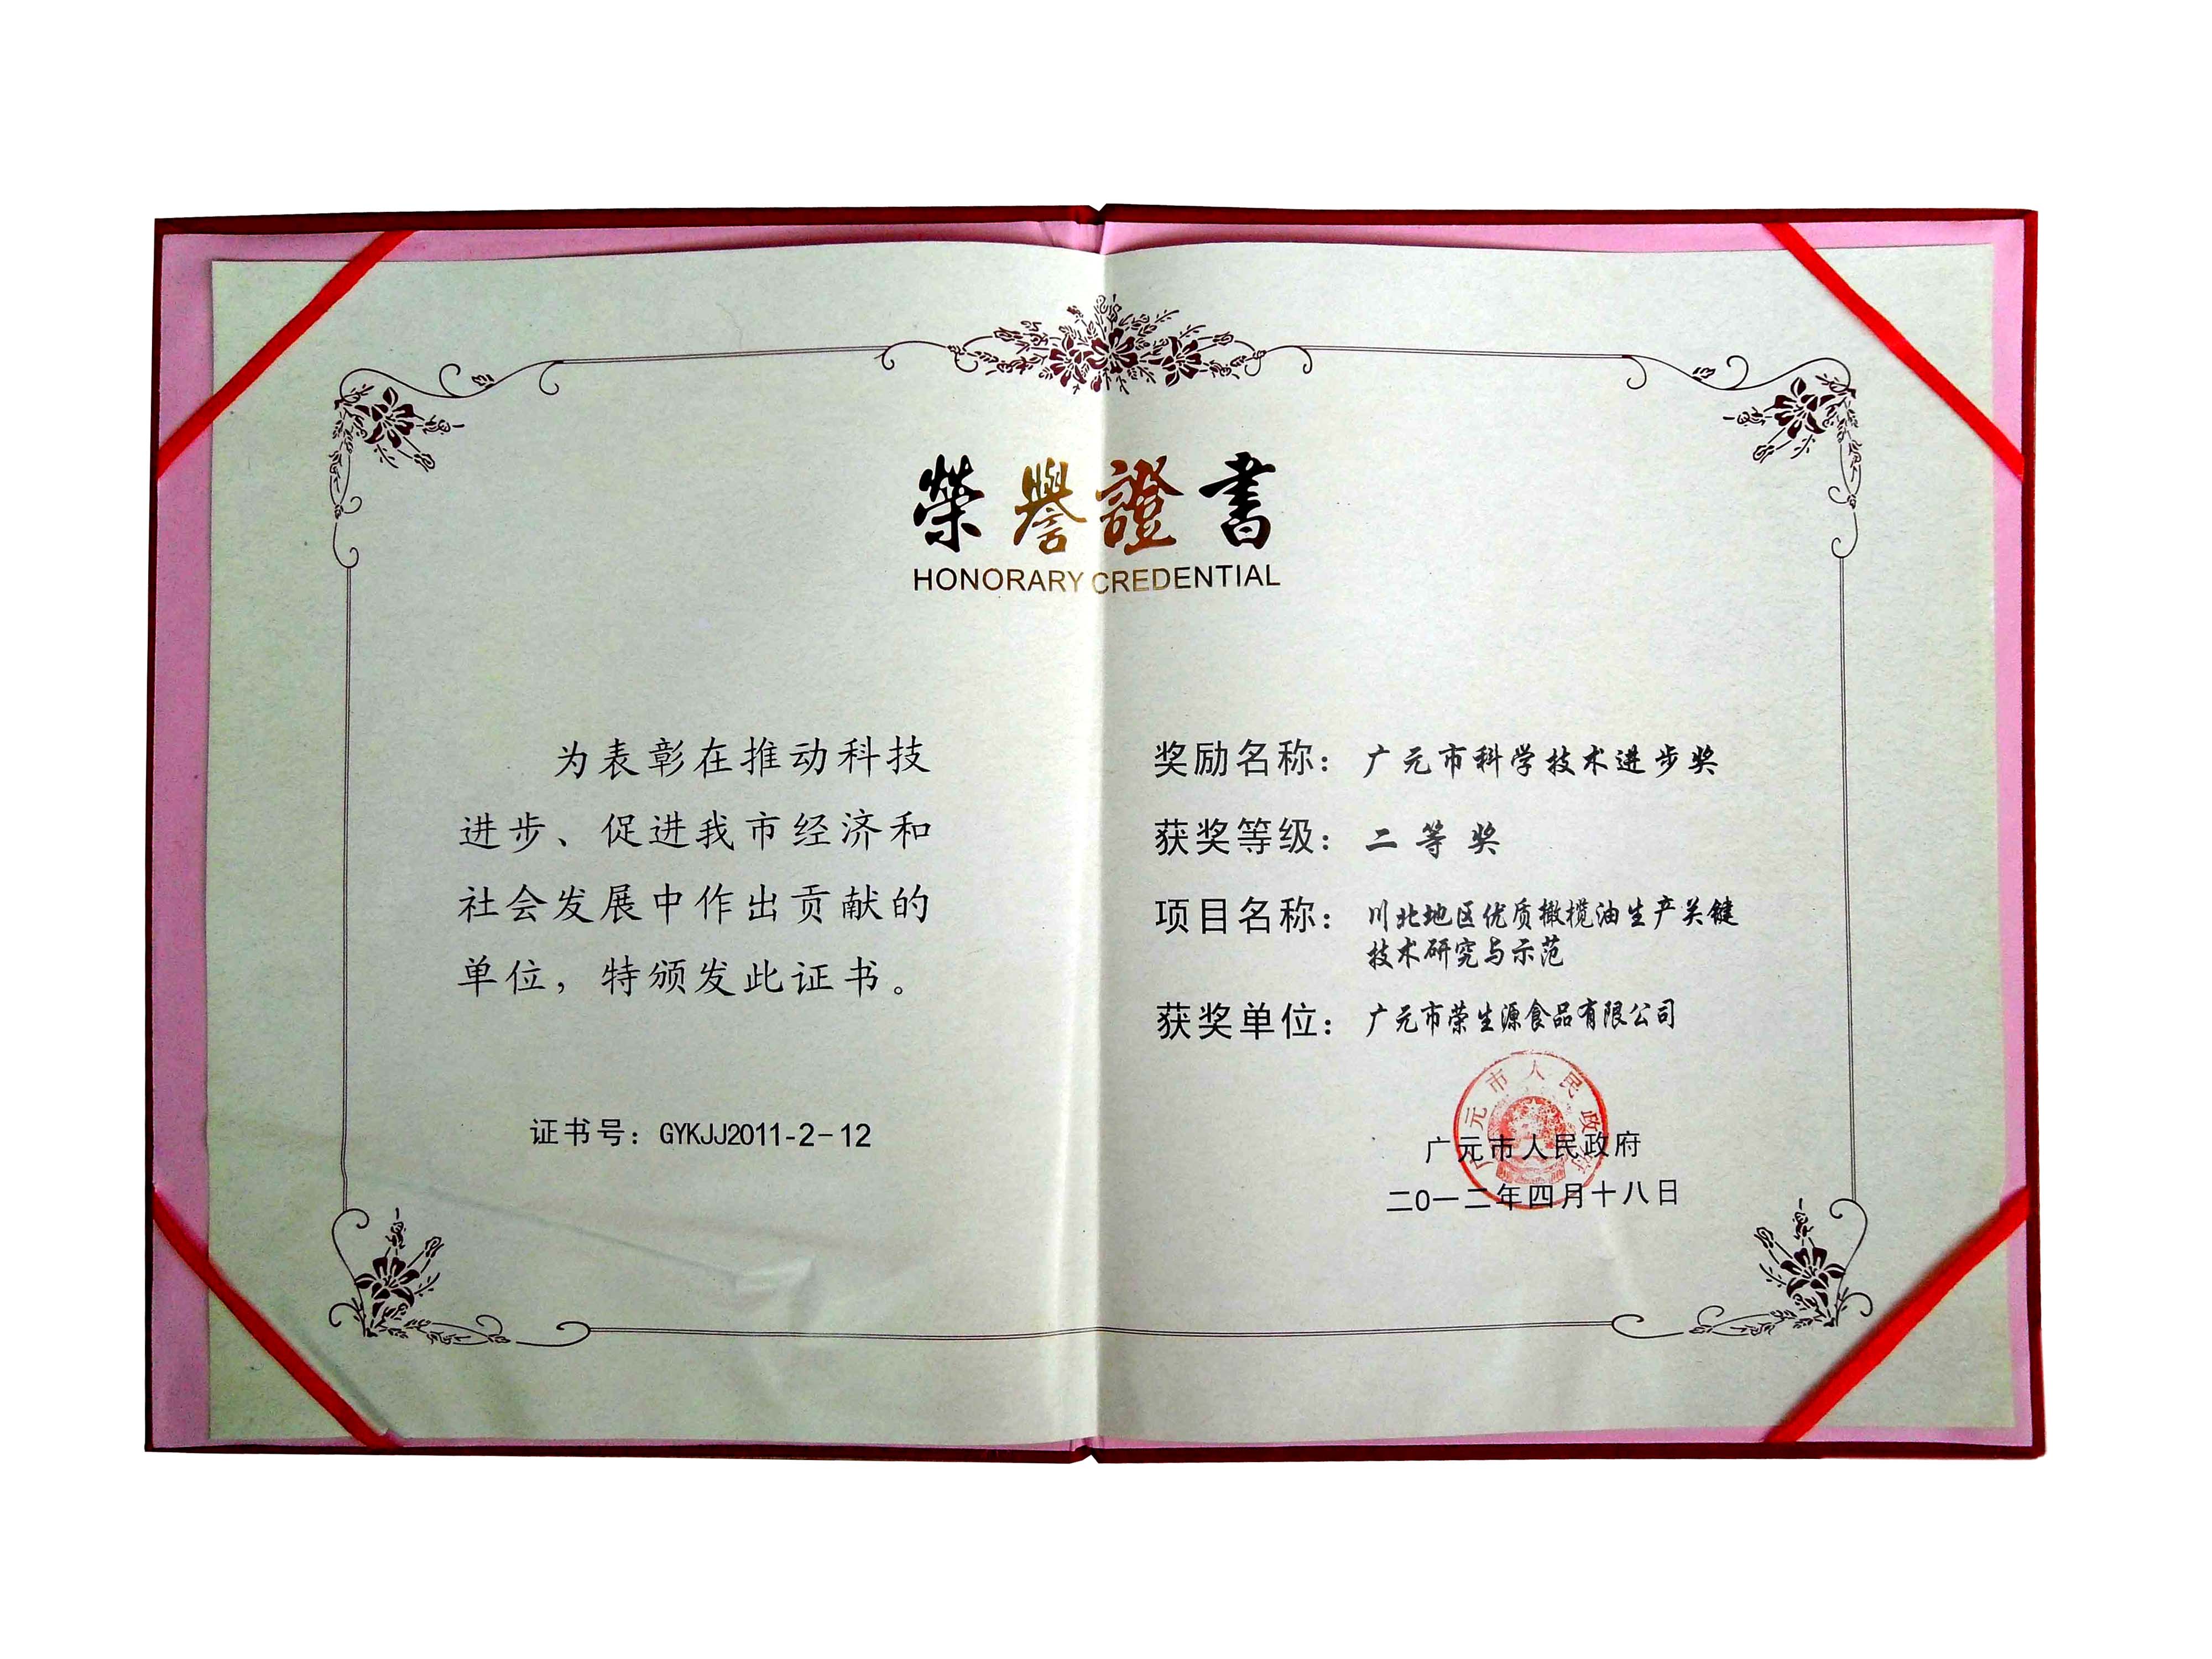 榮譽證書
HONORARY CREDENTIAL
为表彰在推动科技
进步、促进我市经济和
社会发展中作出贡献的
单位，特颁发此证书。
证书号：GYKJJ2011-2-12
奖励名称：广元市科学技术进步奖
获奖等级：二等奖
项目名称：川北地区优质橄榄油生产关键
技术研究与示范
获奖单位：广元市荣生源食品有限公司
广元市人民政府
广元市人民政府
二0一二年四月十八日